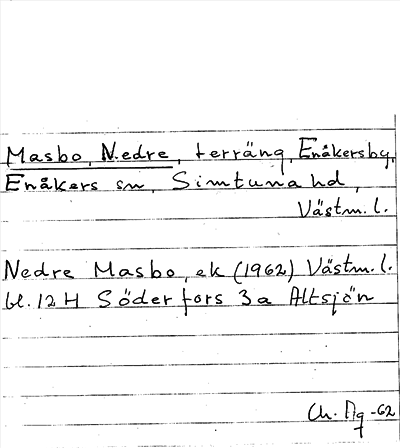 Masbo, Nedre, terräng, Enåkersby,
Enåkers sn, Simtuna hd,
Västm. l.
Nedre Masbo, ek (1962) Västm. l.
bl. 12 H Söderfors 3a Altsjön
-62